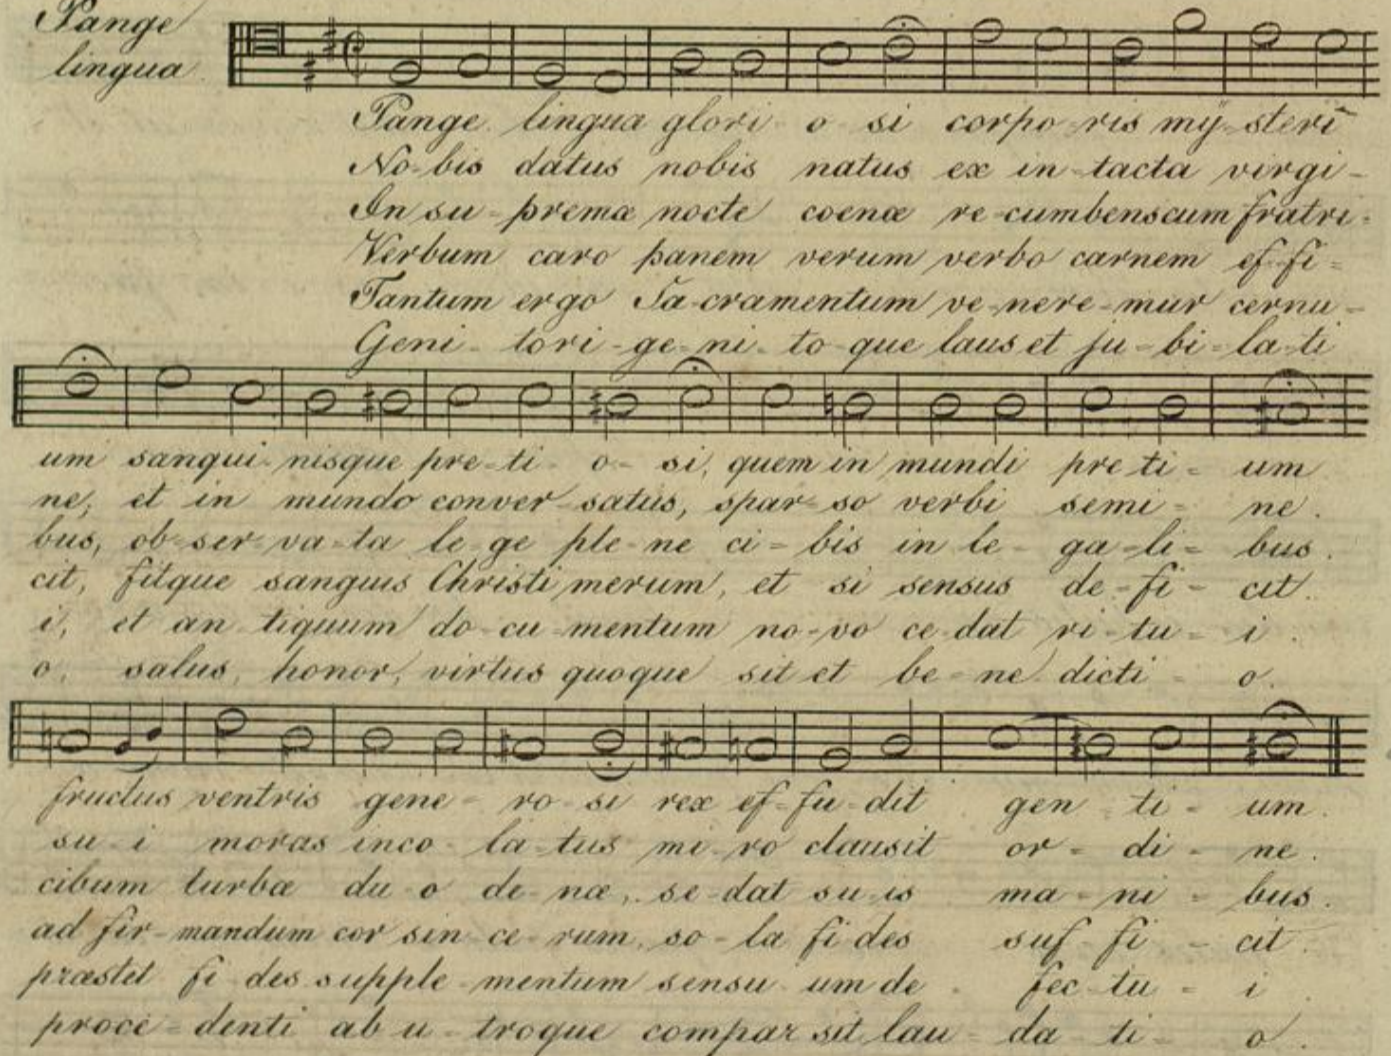 Pange
lingua
Pange lingua glori - o - si corpo - ris my - steri
No - bis datus nobis natus ex in - tacta virgi -
In su - premæ nocte coenæ re - cumbens cum fratri -
Verbum caro panem verum verbo carnem ef - fi =
Tantum ergo Sa - cramentum ve - nere - mur cernu -
Geni - tori - ge - ni - to - que laus et ju - bi - la - ti
um sangui - nisque pre - ti - o - si, quem in mundi pre ti - um
ne, et in mundo conver - satus, spar - so verbi semi - ne.
bus, ob - ser - va - ta le - ge ple - ne ci - bis in le - ga - li - bus.
cit, fitque sanguis Christi merum, et si sensus de - fi - cit.
i, et an - tiquum do - cu - mentum no - vo ce - dat ri - tu - i.
o, salus, honor, virtus quoque sit et be - ne dicti - o.
fructus ventris gene - ro - si rex ef - fu - dit gen - ti - um.
su - i moras inco - la - tus mi - ro clausit or - di - ne.
cibum turbæ du - o - de - næ, se - dat su - is ma - ni - bus.
ad fir - mandum cor sin - ce - rum, so - la fi des suf fi - cit.
præstet fi des supple - mentum sensu - um de - fec - tu - i
proce - denti ab u - troque compar sit lau - da - ti - o.